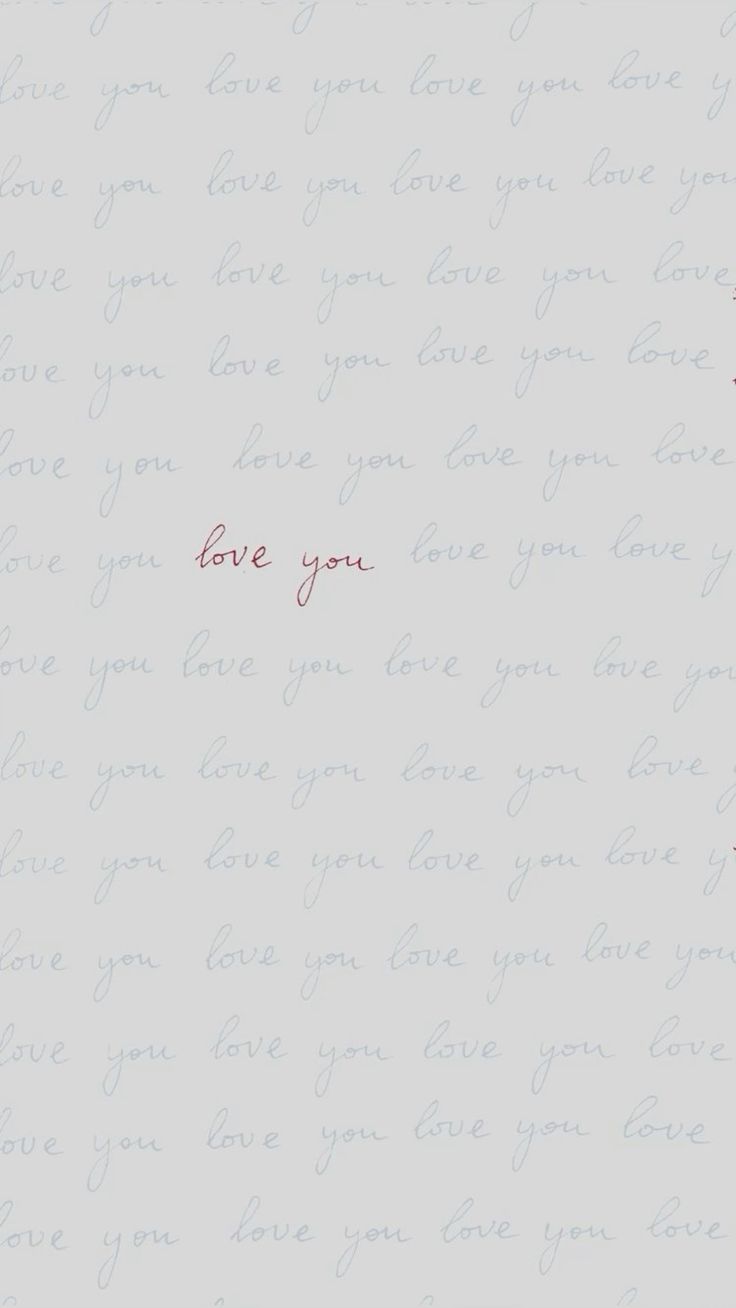 love you love you love you love y
love you love you love you love you
love you love you love you love
love you love you love you love
love you love you love you love
love you love you love you love y
love you love you love you love you
love you love you love you love
love you love you love you love y
love you love you love you love you
love you love you love you love
love you love you love you love
love you love you love you love